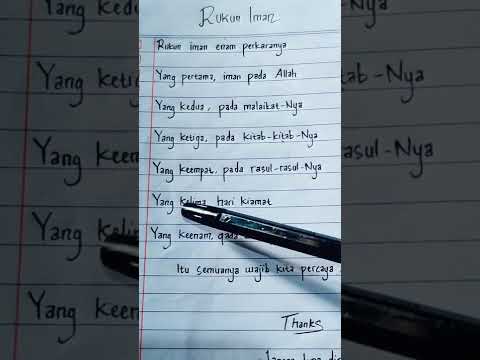 Rukun Iman
Rukun iman enam perkaranya
Yang pertama, iman pada Allah
Yang kedua, pada malaikat-Nya
Yang ketiga, pada kitab-kitab-Nya
Yang keempat, pada rasul-rasul-Nya
Yang kelima, hari kiamat
Yang keenam, qada
Itu semuanya wajib kita percaya
Thanks